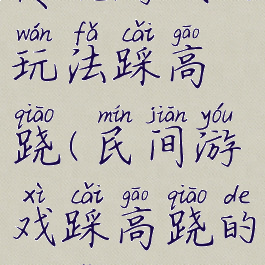 wán fǎ cǎi gāo
玩法踩高
qiāo mín jiān yóu
跷(民间游
xì cǎi gāo qiāo de
戏踩高跷的